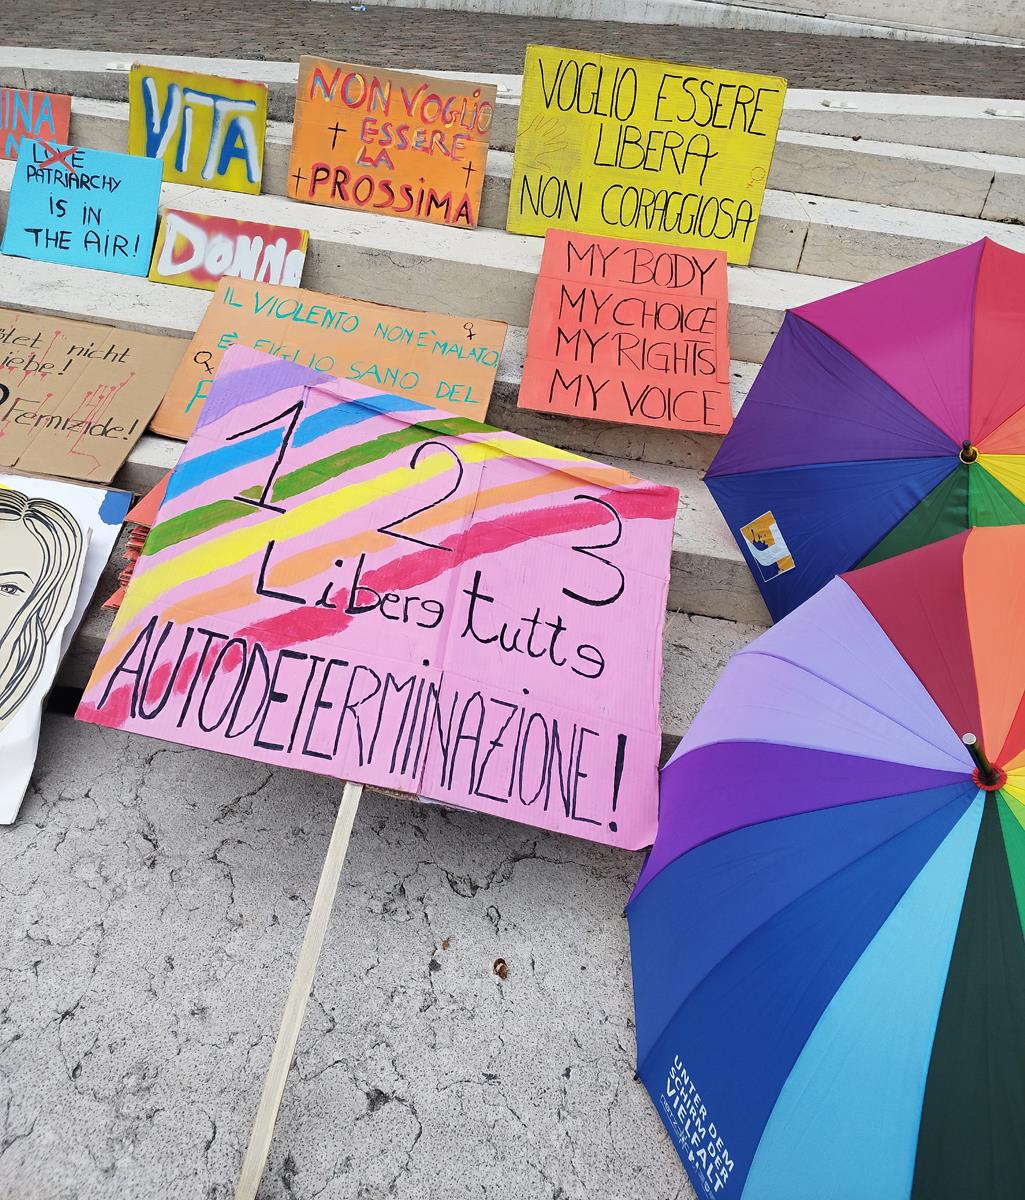 VITA
NON VOGLIO
ESSERE
LA
PROSSIMA
VOGLIO ESSERE
LIBERA
NON CORAGGIOSA
INA
LOVE
PATRIARCHY
IS IN
THE AIR!
DONNA
MY BODY
MY CHOICE
MY RIGHTS
MY VOICE
IL VIOLENTO NON È MALATO,
È FIGLIO SANO DEL
nicht
iebe!
Femizide!
1 2 3
Liberə tuttə
AUTODETERMINAZIONE!
UNTER DEM
SCHIRM DER
VIELFALT